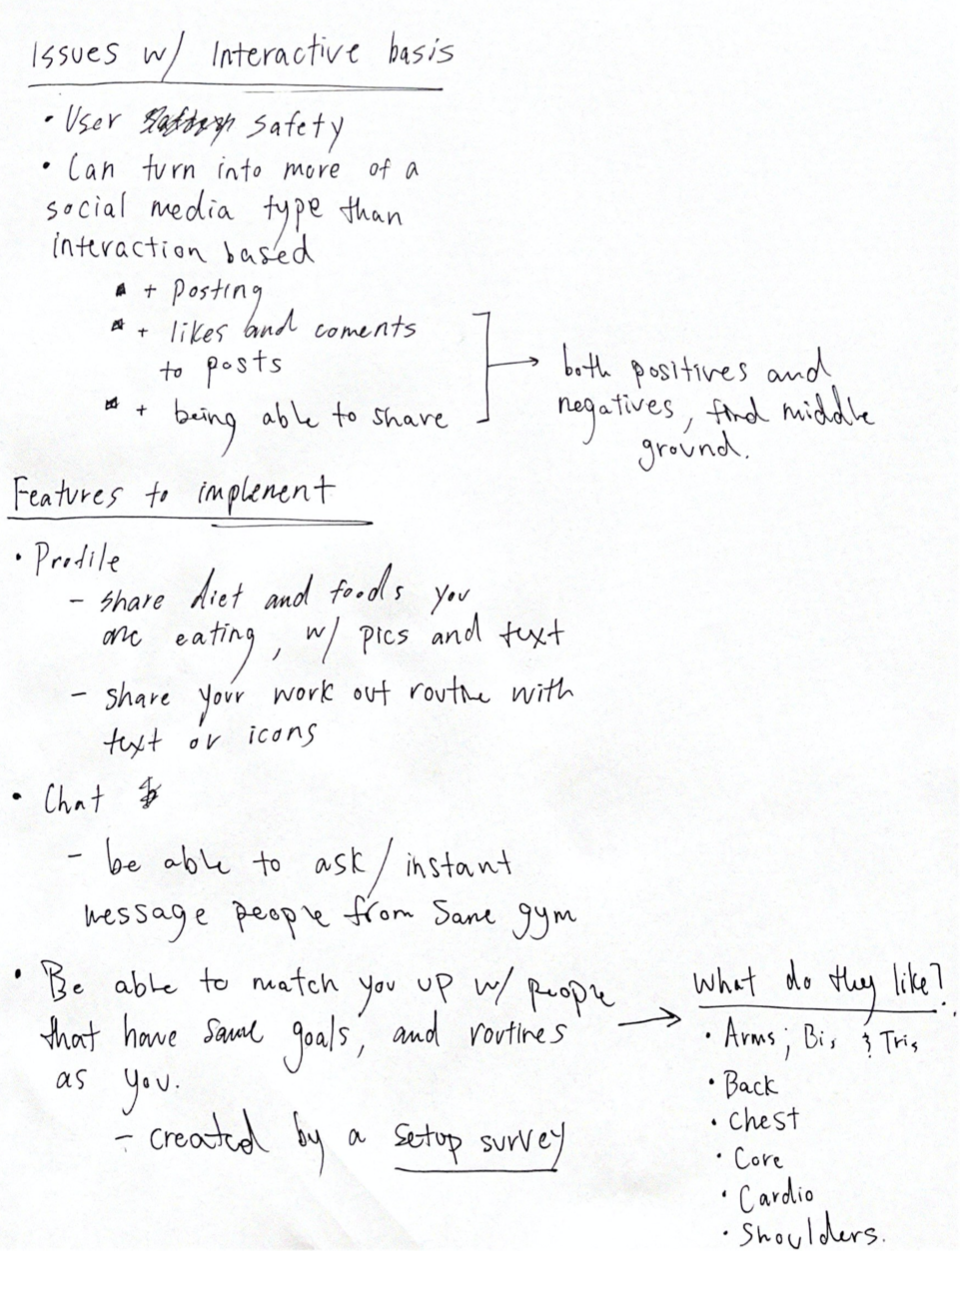 Issues w/ Interactive basis
• User safety
• Can turn into more of a
social media type than
interaction based
+ Posting
+ likes and coments
to posts
+ being able to share
both positives and
negatives, find middle
ground.
Features to implenent
• Profile
- share diet and foods you
are eating, w/ pics and text
- share your work out routine with
text or icons
• Chat
- be able to ask/instant
message people from same gym
• Be able to match you up w/ people
that have same goals, and routines
as you.
- created by a setup survey
What do they like?
• Arms; Bis & Tris
• Back
• Chest
• Core
• Cardio
• Shoulders.